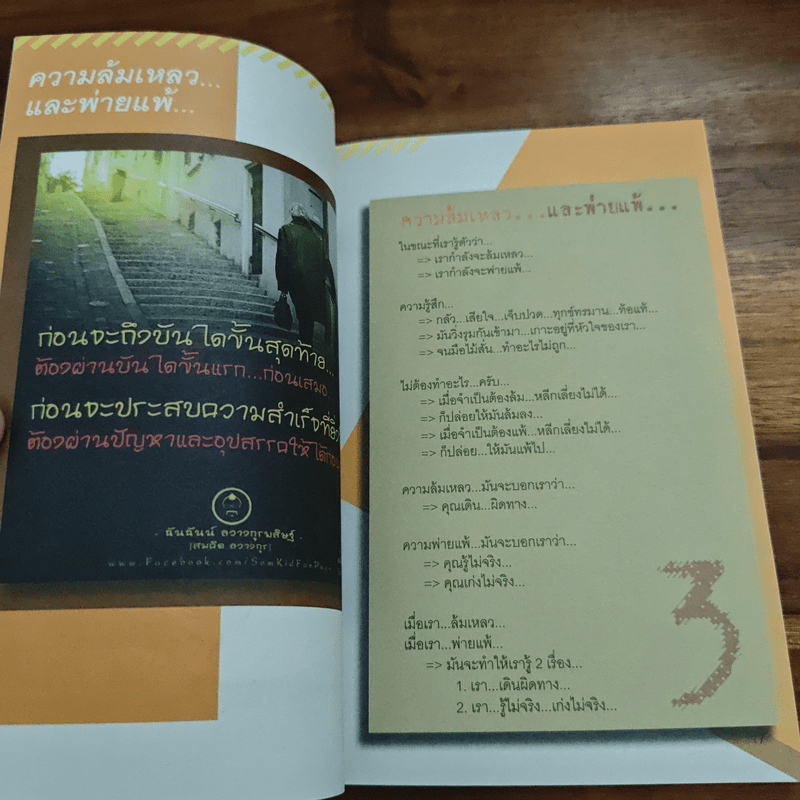 ความล้มเหลว...
และพ่ายแพ้...
ก่อนจะถึงบันไดขั้นสุดท้าย...
ต้องผ่านบันไดขั้นแรก...ก่อนเสมอ
ก่อนจะประสบความสำเร็จที่ยิ่ง
ต้องผ่านปัญหาและอุปสรรคให้ได้ก่อน
[สมคิด ลวางกูร]
www.Facebook.com/SomKidForPage
ความล้มเหลว...และพ่ายแพ้...
ในขณะที่เรารู้ตัวว่า...
=> เรากำลังจะล้มเหลว...
=> เรากำลังจะพ่ายแพ้...
ความรู้สึก...
=> กลัว...เสียใจ...เจ็บปวด...ทุกข์ทรมาน...ท้อแท้...
=> มันวิ่งรุมกันเข้ามา...เกาะอยู่ที่หัวใจของเรา...
=> จนมือไม้สั่น...ทำอะไรไม่ถูก...
ไม่ต้องทำอะไร...ครับ...
=> เมื่อจำเป็นต้องล้ม...หลีกเลี่ยงไม่ได้...
=> ก็ปล่อยให้มันล้มลง...
=> เมื่อจำเป็นต้องแพ้...หลีกเลี่ยงไม่ได้...
=> ก็ปล่อย...ให้มันแพ้ไป...
ความล้มเหลว...มันจะบอกเราว่า...
=> คุณเดิน...ผิดทาง...
ความพ่ายแพ้...มันจะบอกเราว่า...
=> คุณรู้ไม่จริง...
=> คุณเก่งไม่จริง...
เมื่อเรา...ล้มเหลว...
เมื่อเรา...พ่ายแพ้...
=> มันจะทำให้เรารู้ 2 เรื่อง...
1. เรา...เดินผิดทาง...
2. เรา...รู้ไม่จริง...เก่งไม่จริง...
3